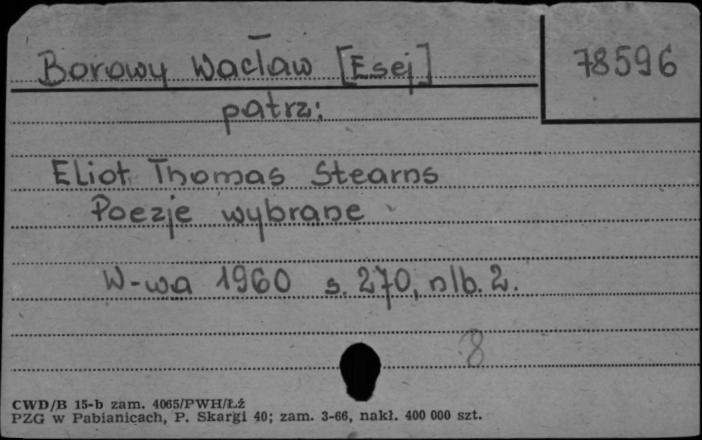 Borowy Wacław [Esej] 78596
patrz:
Eliot Thomas Stearns
Poezje wybrane
W-wa 1960 s. 270, nlb. 2.
8
CWD/B 15-b zam. 4065/PWH/Łź
PZG w Pabianicach, P. Skargi 40; zam. 3-66, nakł. 400 000 szt.